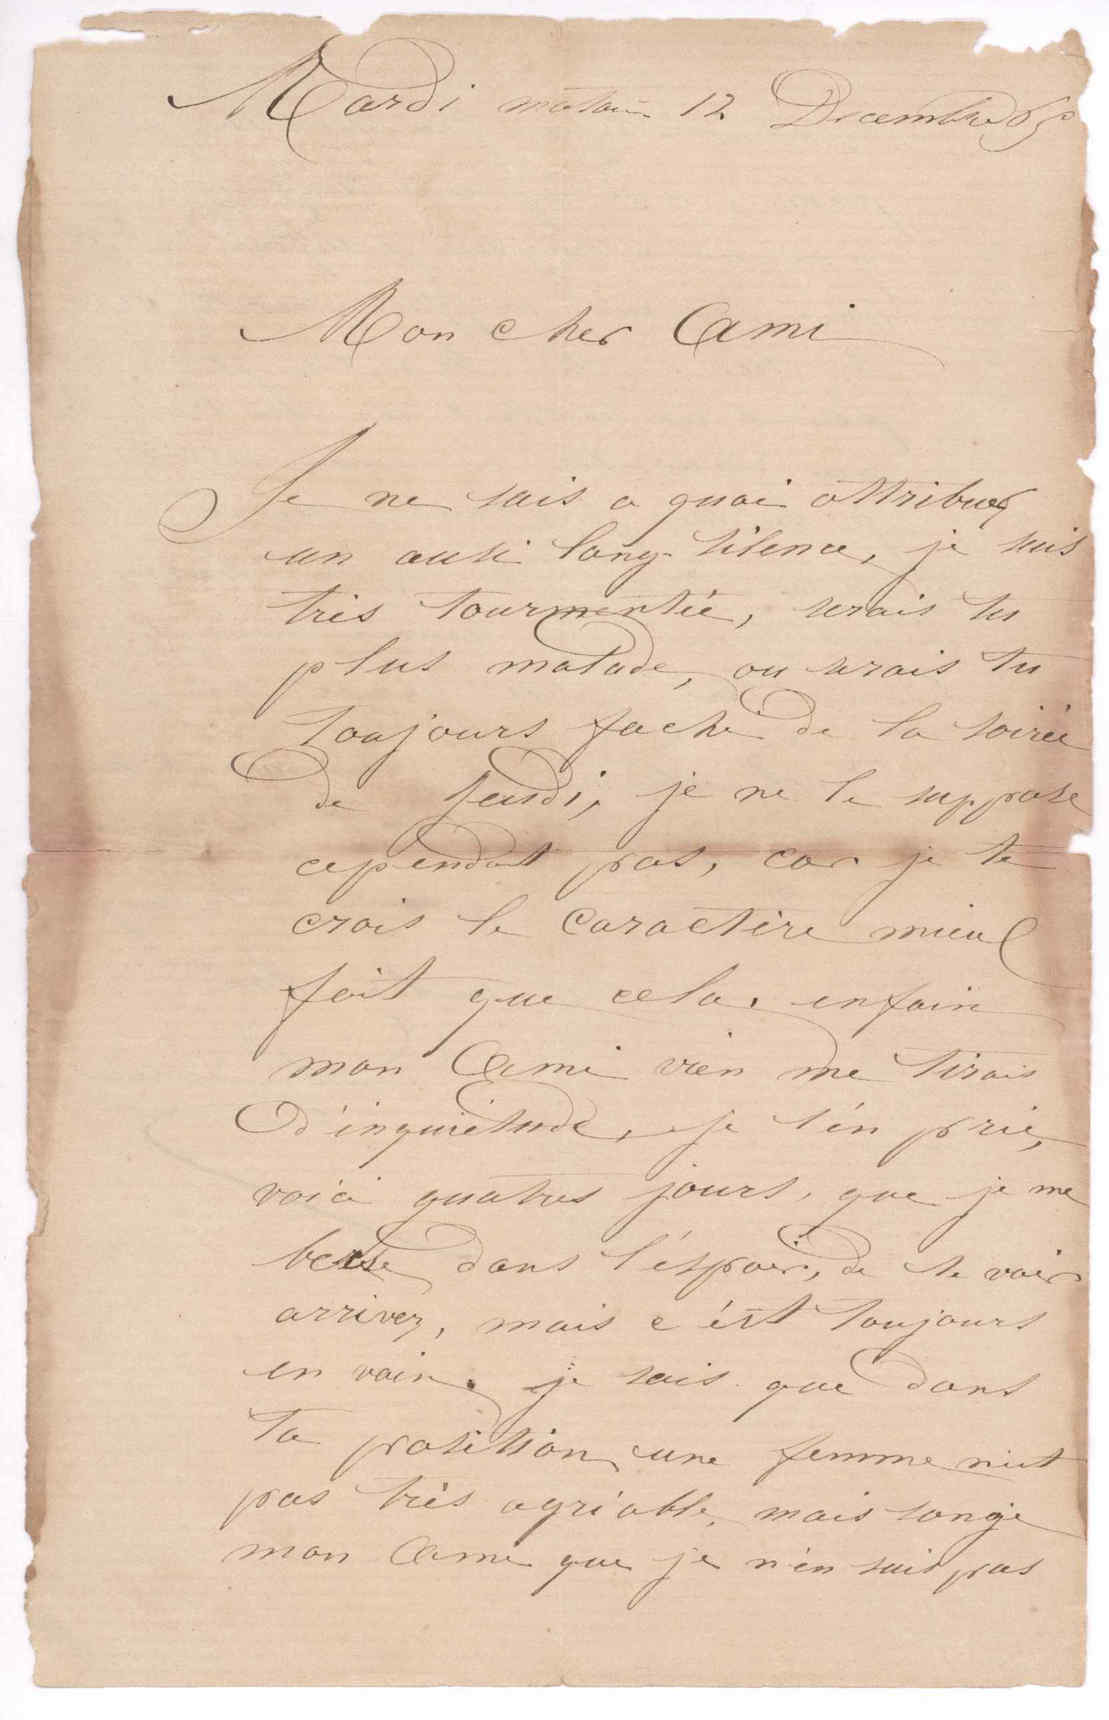 Mardi matin 12 Decembre 65
Mon cher Ami
Je ne sais a quoi attribuer
un ausi long silence, je suis
très tourmentée, serais tu
plus malade, ou serais tu
toujours faché de la soirée
de Jeudi, je ne le suppose
cependant pas, car je te
crois le caractère mieux
fait que cela. enfain
mon Ami vien me tirais
d'inquiétude, je t'én prie,
voici quatres jours, que je me
berse dans l'éspoir, de te voir
arriver, mais c'ést toujours
en vain. je sais que dans
ta position, une femme n'est
pas très agréable, mais songe
mon Ami que je n'én suis pas